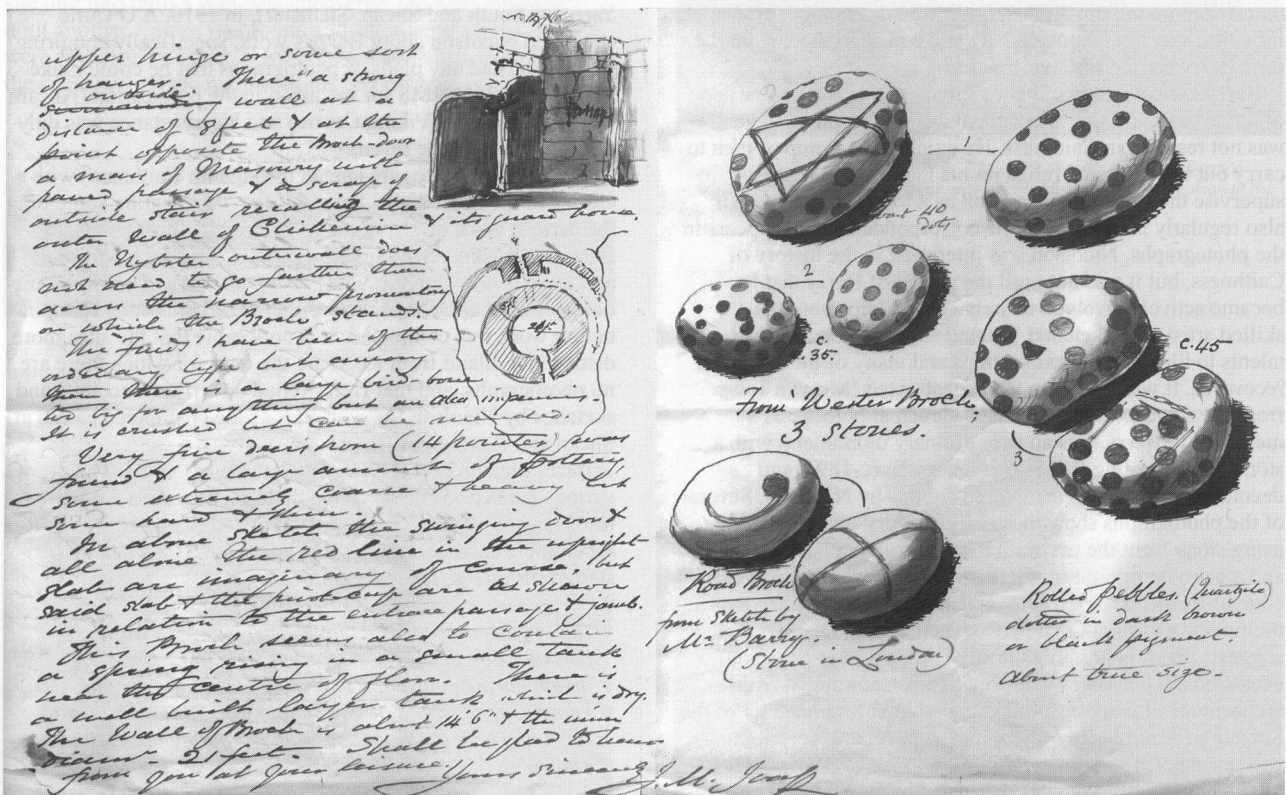 upper hinge or some sort
of hanger. There is a strong
outside
surrounding wall at a
distance of 8 feet & at the
point opposite the Broch-door
a mass of Masonry with
paved passage & a scrap of
outside stair recalling the
outer wall of Clickemin & its guard house.
The Nybster outer walls does
not need to go further than
across the narrow promontory
on which the Broch stands.
The 'Finds' have been of the
ordinary type but among
them there is a large bird bone
too big for anything but an alca impennis.
It is crushed but can be mended.
Very fine deers horn (14 pointer) was
found & a large amount of pottery,
some extremely coarse & heavy but
some hard & thin.
In above sketch the swinging door &
all above the red line in the upright
slab are imaginary of course, but
said slab & the pivot cup are as shown
in relation to the entrance passage & jamb.
This Broch seems also to contain
a spring rising in a small tank
near the centre of floor. There is
a well built larger tank which is dry.
The Wall of Broch is about 14'6" & the inner
diamr. 21 feet. Shall be glad to hear
from you at your leisure. Yours Sincerely
1
about 40
dots
2
c.
35.
c. 45
3
From Wester Broch,
3 stones.
Road Broch
from sketch by
Mr. Barry.
(Stone in London)
Rolled pebbles. (Quartzite)
dotted in dark brown
or black pigment.
about true size.